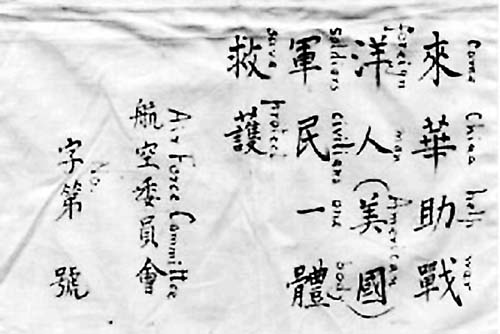 Come China help war
來華助戰
foreign man American
洋人(美國)
soldiers civilians one body
軍民一體
save protect
救護
Air Force Committee
航空委員會
No.
字第 號